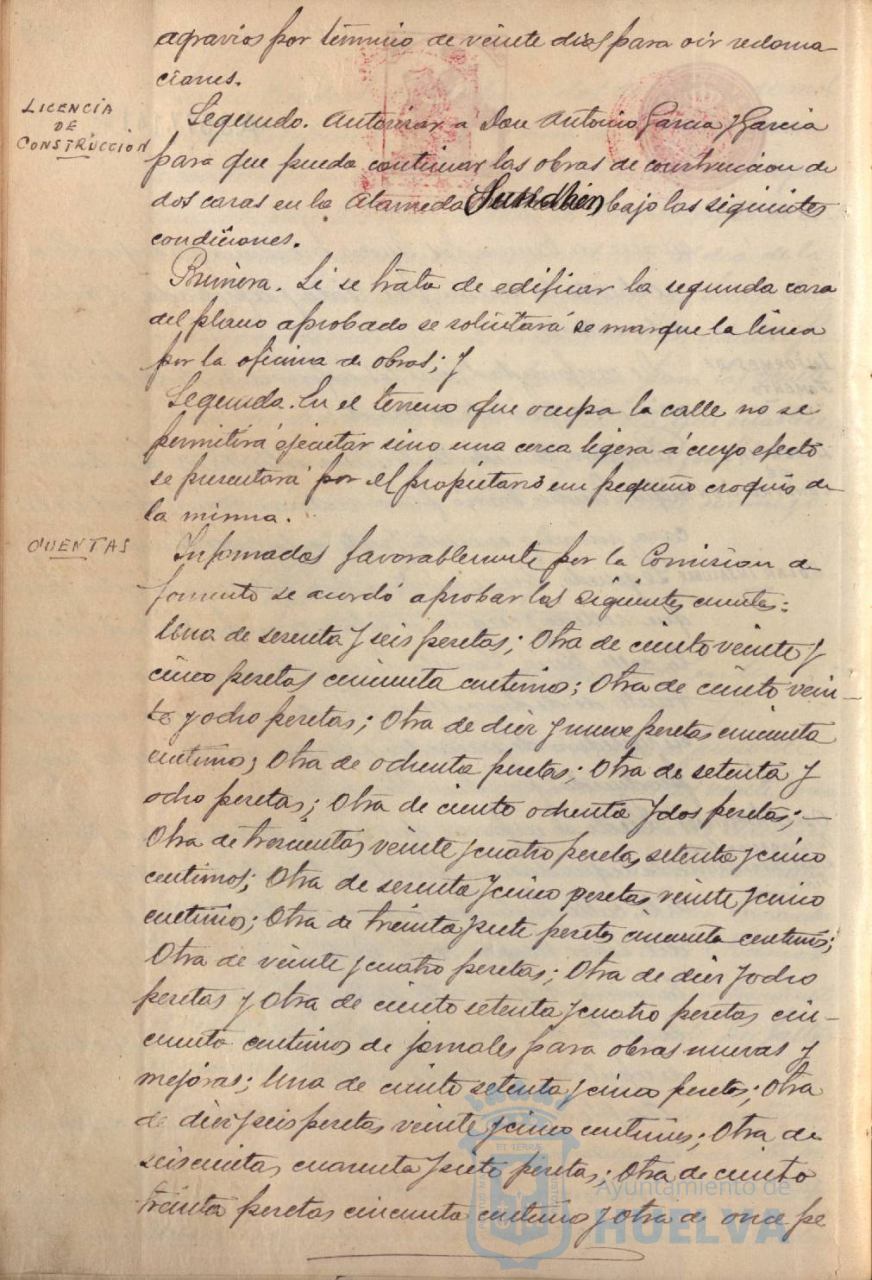 agravios por término de veinte dias para oir reclama
ciones.
LICENCIA
DE
CONSTRUCCIÓN
Segundo. Autorizar a Don Antonio Garcia y Garcia
para que pueda continuar las obras de construccion de
dos casas en la Alameda Sundhein bajo las siguientes
condiciones.
Primera. Si se trata de edificar la segunda casa
del plano aprobado se solicitará se marque la linea
por la oficina de obras; y
Segunda. En el terreno que ocupa la calle no se
permitirá ejecutar sino una cerca ligera á cuyo efecto
se presentará por el propietario un pequeño croquis de
la misma.
CUENTAS
Informadas favorablemente por la Comision de
fomento se acordó aprobar las siguientes cuentas:
Una de sesenta y seis pesetas; Otra de ciento veinte y
cinco pesetas cincuenta centimos; Otra de ciento vein-
te y ocho pesetas; Otra de diez y nueve pesetas cincuenta
centimos; Otra de ochenta pesetas; Otra de setenta y
ocho pesetas; Otra de ciento ochenta y dos pesetas;-
Otra de trescientas veinte y cuatro pesetas setenta y cinco
centimos; Otra de sesenta y cinco pesetas veinte y cinco
centimos; Otra de treinta y siete pesetas cincuenta centimos;
Otra de veinte y cuatro pesetas; Otra de diez y ocho
pesetas y Otra de ciento setenta y cuatro pesetas cin-
cuenta centimos de jornales para obras nuevas y
mejoras; Una de ciento setenta y cinco pesetas; Otra
de diez y seis pesetas veinte y cinco centimos; Otra de
seiscientas cuarenta y siete pesetas; Otra de ciento
treinta pesetas cincuenta centimos y Otra de once pe
Ayuntamiento de
HUELVA